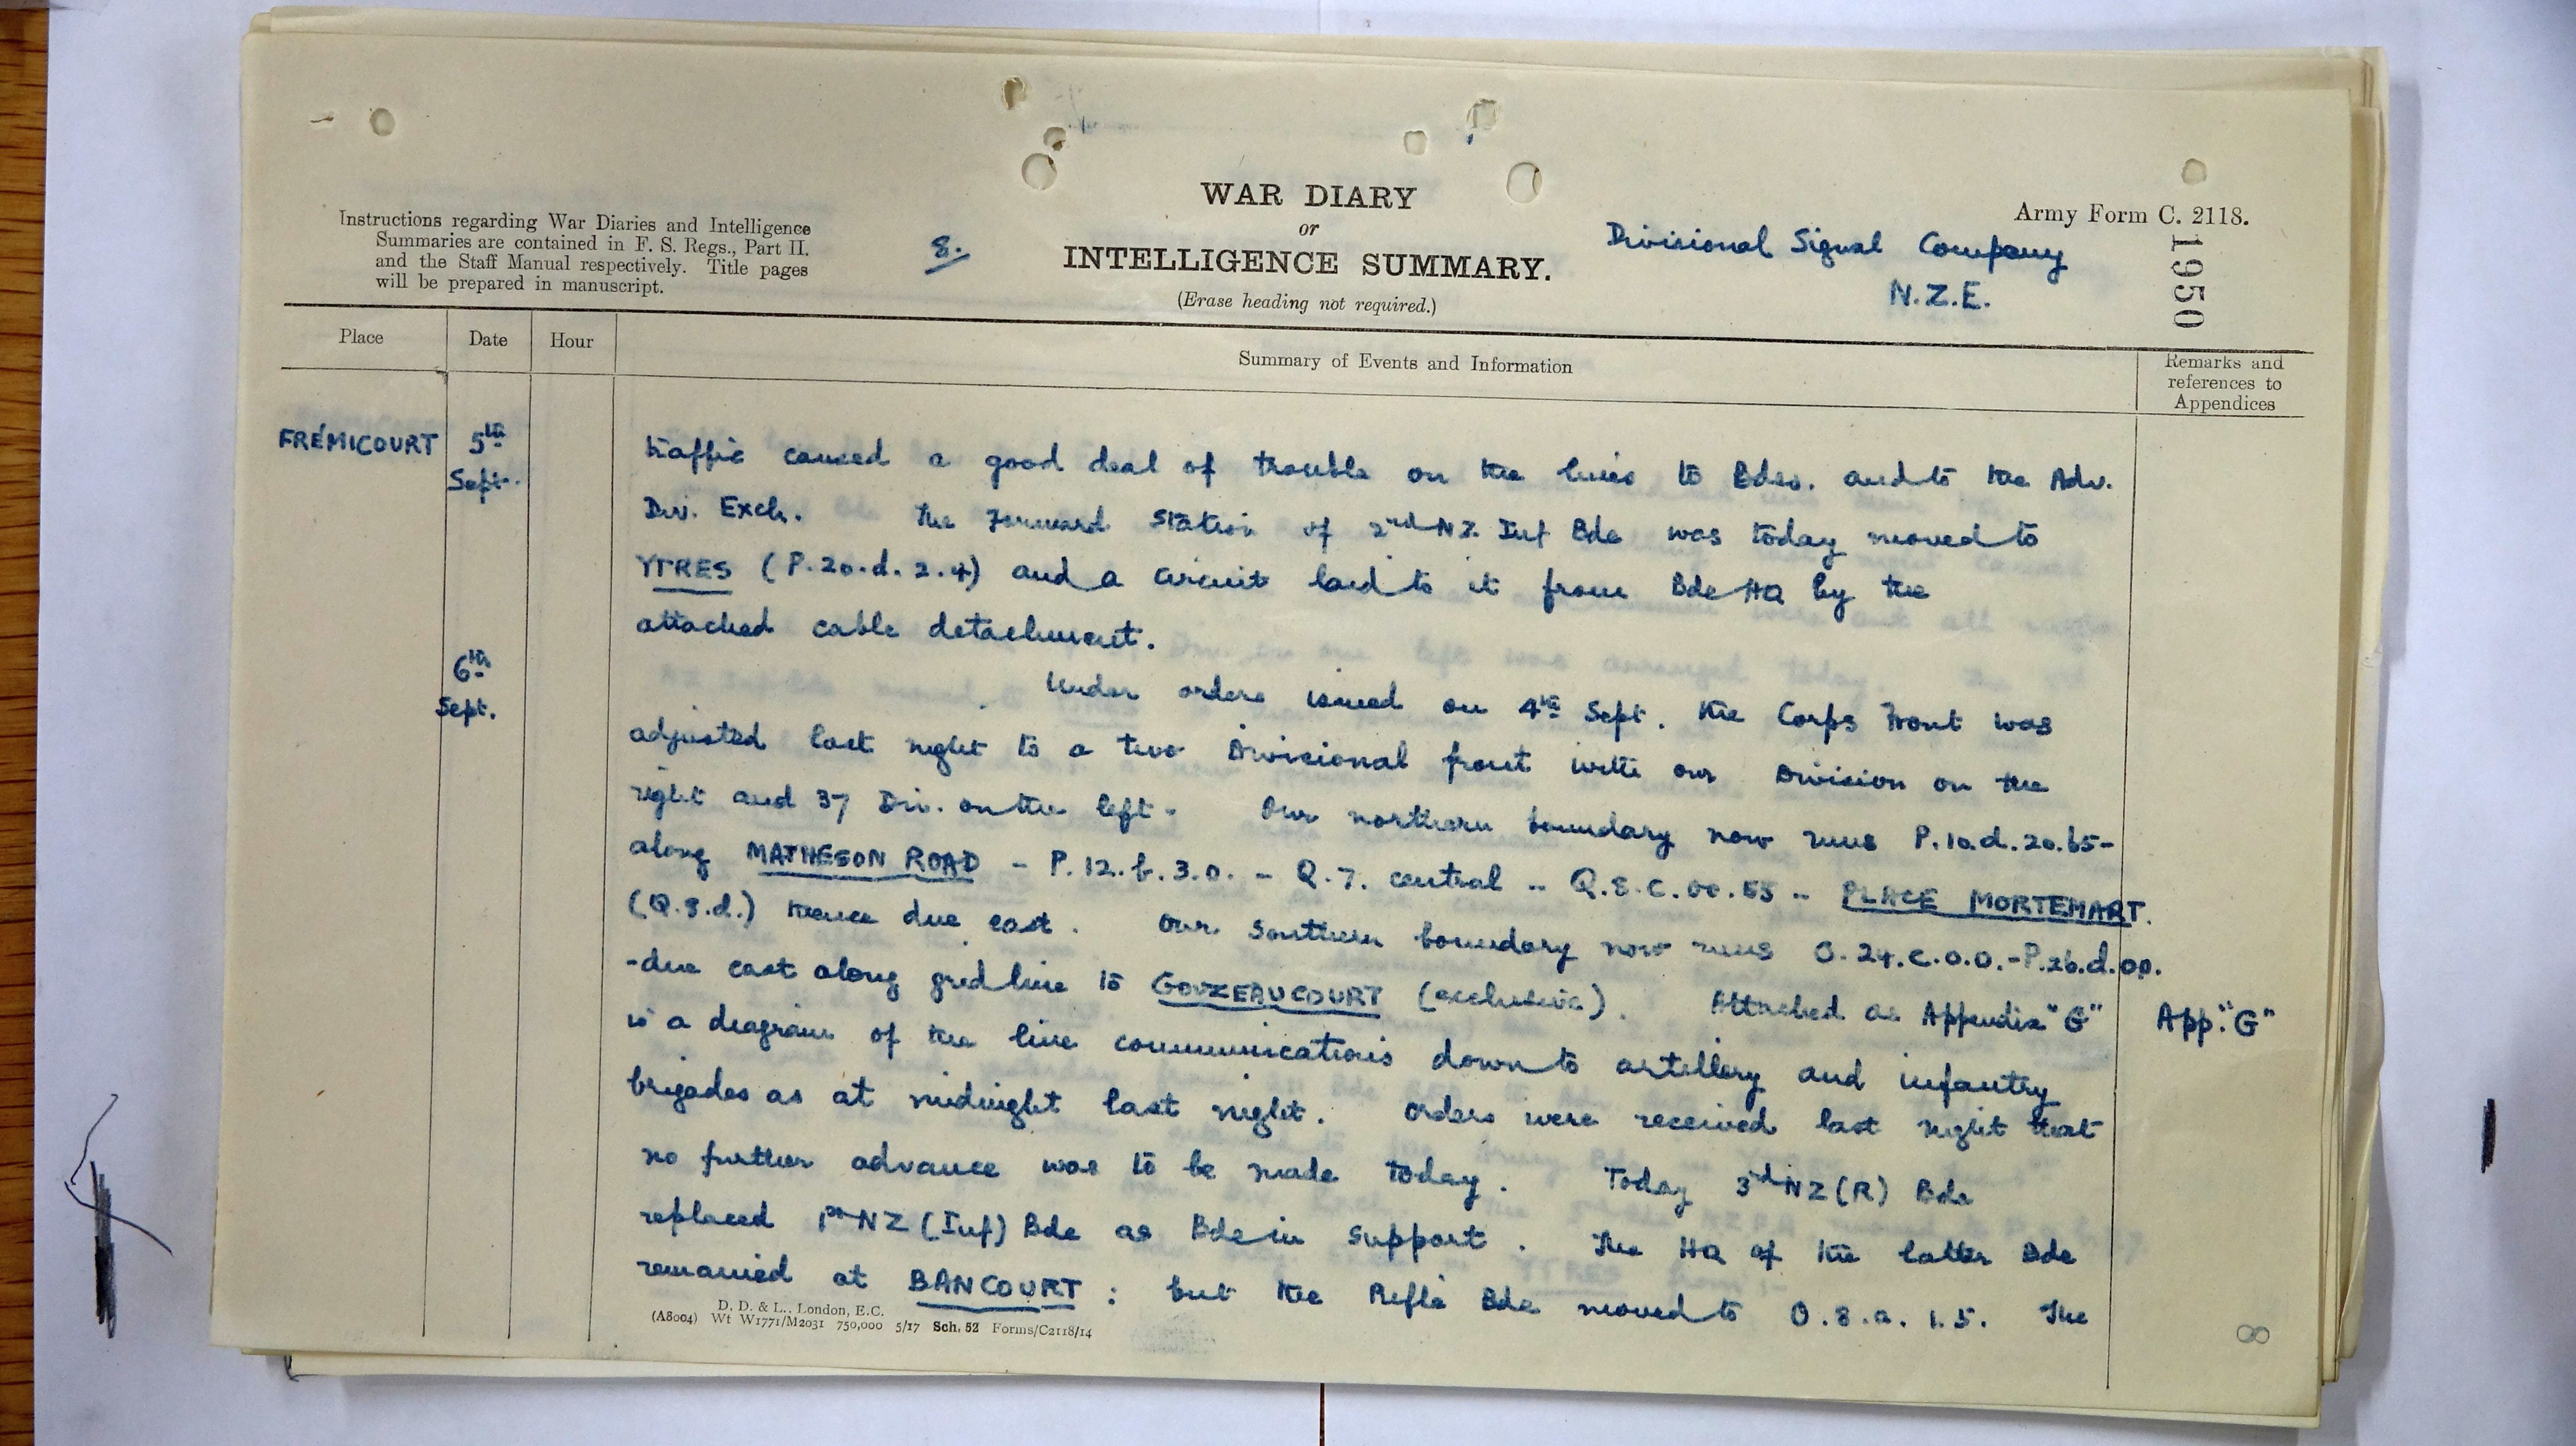 Instructions regarding War Diaries and Intelligence
Summaries are contained in F. S. Regs., Part II.
and the Staff Manual respectively. Title pages
will be prepared in manuscript.
8.
WAR DIARY
or
INTELLIGENCE SUMMARY.
(Erase heading not required.)
Army Form C. 2118.
Divisional Signal Company
N.Z.E.
1950
Place
Date
Hour
Summary of Events and Information
Remarks and
references to
Appendices
FRÉMICOURT
5th
Sept.
traffic caused a good deal of trouble on the lines to Bdes. and to the Adv.
Div. Exch. The Forward Station of 2nd NZ. Inf Bde was today moved to
YTRES (P.20.d.2.4) and a circuit laid to it from Bde HQ by the
attached cable detachment.
6th
Sept.
Under orders issued on 4th Sept. the Corps Front was
adjusted last night to a two Divisional front with our Division on the
right and 37 Div. on the left. Our northern boundary now runs P.10.d.20.65-
along MATHESON ROAD - P.12.b.3.0. - Q.7. central - Q.8.c.00.55 - PLACE MORTEMART.
(Q.8.d.) thence due east. Our Southern boundary now runs O.24.c.0.0.-P.26.d.00.
-due east along grid line to GOUZEAUCOURT (exclusive). Attached as Appendix "G"
App. "G"
is a diagram of the line communications down to artillery and infantry
brigades as at midnight last night. Orders were received last night that
no further advance was to be made today. Today 3rd NZ (R) Bde
replaced 1st NZ (Inf) Bde as Bde in support. The HQ of the latter Bde
remained at BANCOURT: but the Rifle Bde moved to O.8.a.1.5. The
D. D. & L., London, E.C.
(A8004) Wt W1771/M2031 750,000 5/17 Sch. 52 Forms/C2118/14
8